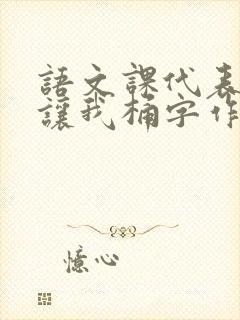 語文課代表
讓我桶字作
憶心